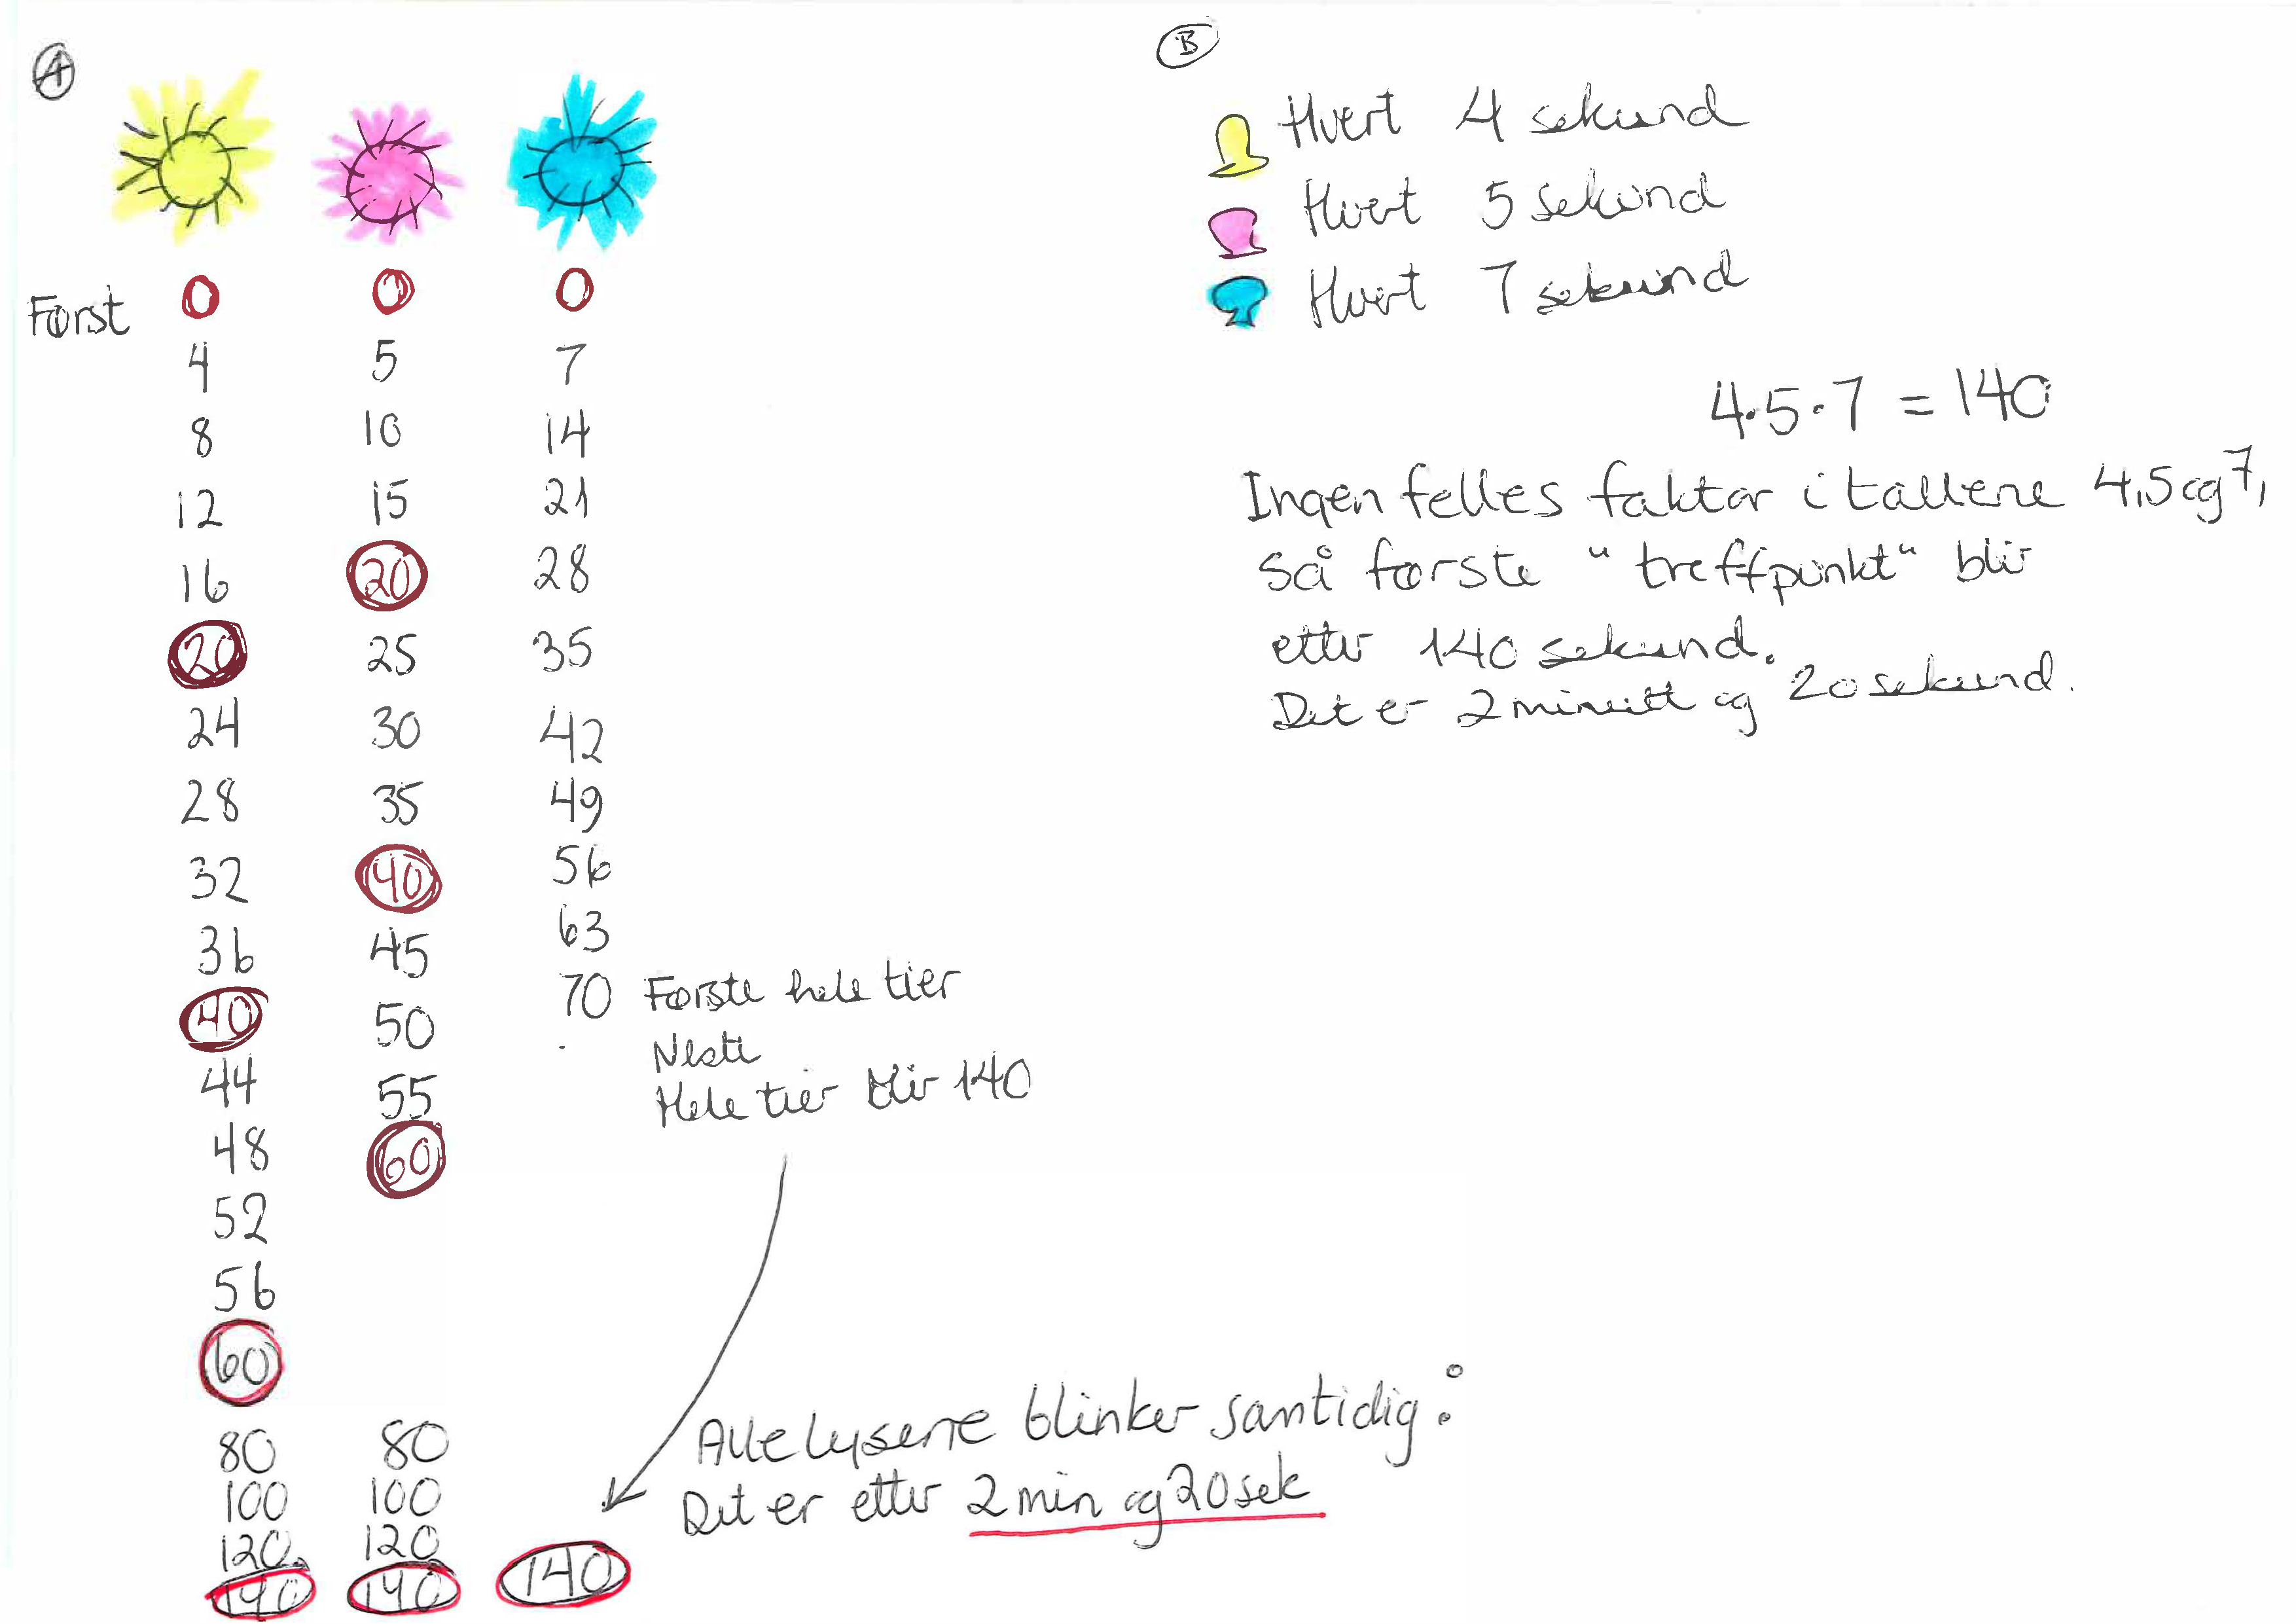 A
Først
0 0 0
4 5 7
8 10 14
12 15 21
16 20 28
20 25 35
24 30 42
28 35 49
32 40 56
36 45 63
40 50 70 Første hele tier
44 55 Neste
48 60 Hele tier blir 140
52
56
60
80 80
100 100
120 120
140 140 140
Alle lysene blinker samtidig:
Det er etter 2 min og 20 sek
B
Hvert 4 sekund
Hvert 5 sekund
Hvert 7 sekund
4·5·7 = 140
Ingen felles faktor i tallene 4,5 og 7,
så første "treffpunkt" blir
etter 140 sekund.
Det er 2 minutt og 20 sekund.